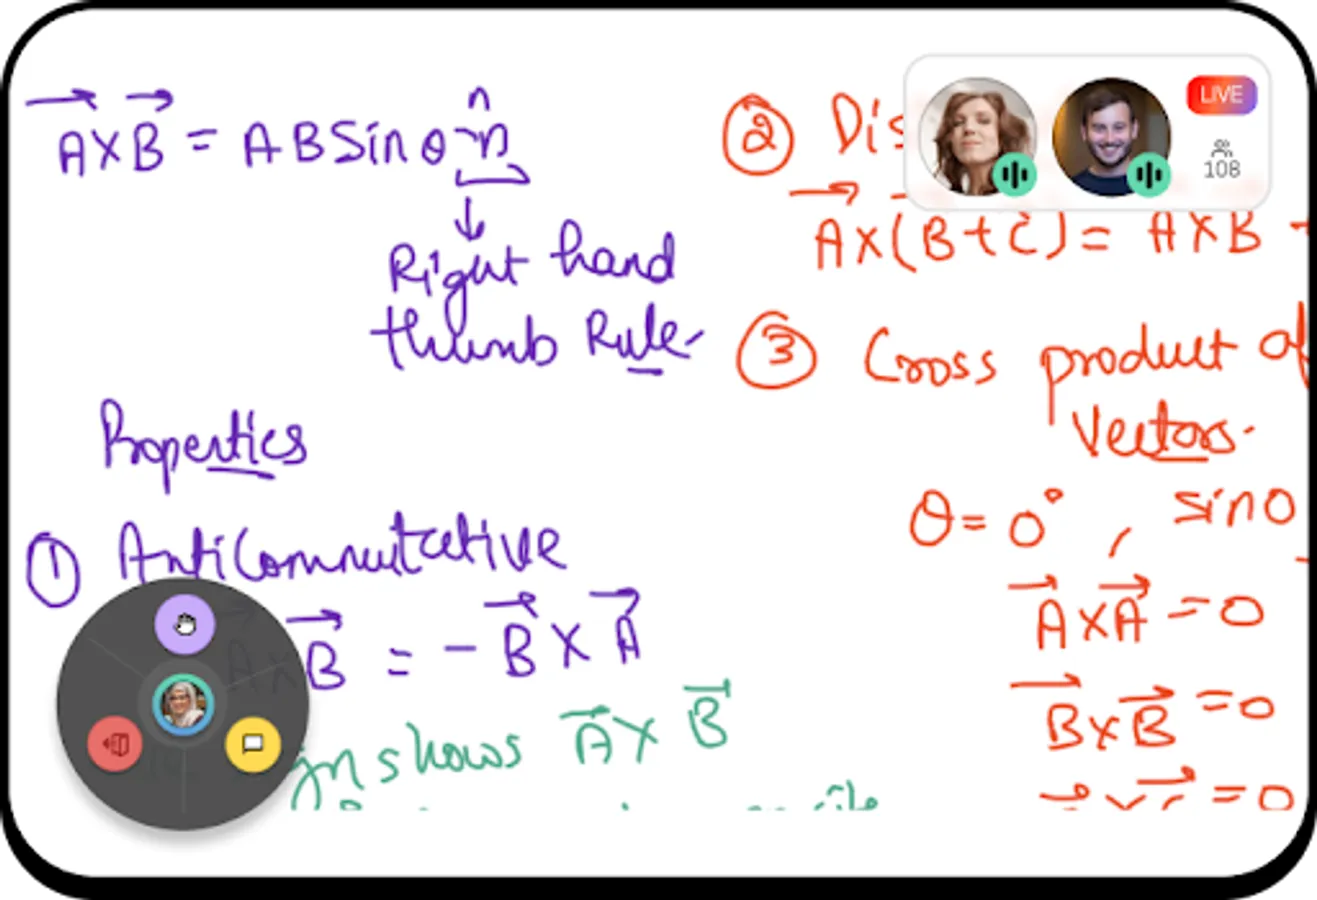 A⃗×B⃗ = AB Sin θ n̂
n̂
Right hand
thumb Rule
Properties
① Anticommutative
B⃗ = - B⃗ × A⃗
shows A⃗ × B⃗
②
A⃗×(B+C) = A×B +
③ Cross product of
Vectors.
θ = 0° , sin 0
A⃗×A⃗ = 0
B⃗×B⃗ = 0
= 0
LIVE
108